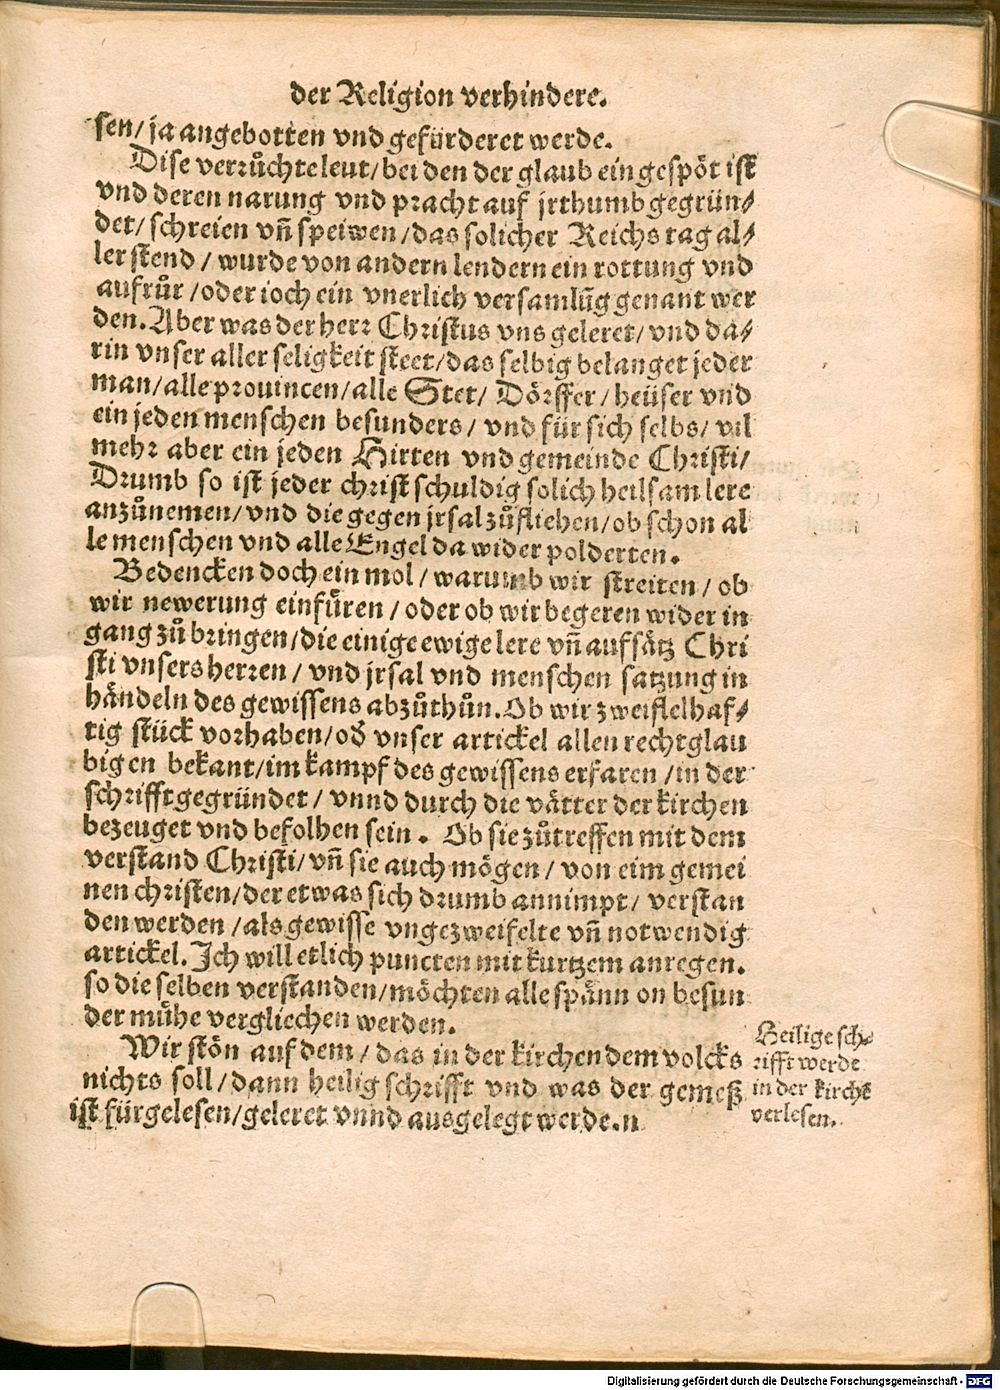 der Religion verhindere.
sen/ ja angebotten vnd gefürderet werde.
Dise verrůchte leut/ bei den der glaub ein gespöt ist
vnd deren narung vnd pracht auf jrthumb gegrün⸗
det/ schreien vñ speiwen/ das solicher Reichs tag al⸗
ler stend/ wurde von andern lendern ein rottung vnd
aufrůr/ oder ioch ein vnerlich versamlũg genant wer
den. Aber was der herr Christus vns geleret/ vnd da⸗
rin vnser aller seligkeit steet/ das selbig belanget jeder
man/ alle prouincen/ alle Stet/ Dörffer/ heüser vnd
ein jeden menschen besunders/ vnd für sich selbs/ vil
mehr aber ein jeden Hirten vnd gemeinde Christi/
Drumb so ist jeder christ schuldig solich heilsam lere
anzůnemen/ vnd die gegen jrsal zůfliehen/ ob schon al
le menschen vnd alle Engel da wider polderten.
Bedencken doch ein mol/ warumb wir streiten/ ob
wir newerung einfüren/ oder ob wir begeren wider in
gang zů bringen/ die einige ewige lere vñ aufsätz Chri
sti vnsers herren/ vnd jrsal vnd menschen satzung in
händeln des gewissens abzůthůn. Ob wir zweiflelhaf⸗
tig stück vorhaben/ od̕ vnser artickel allen rechtglau
bigen bekant/ im kampf des gewissens erfaren/ in der
schrifft gegründet/ vnnd durch die vätter der kirchen
bezeuget vnd befolhen sein. Ob sie zůtreffen mit dem
verstand Christi/ vñ sie auch mögen/ von eim gemei
nen christen/ der etwas sich drumb annimpt/ verstan
den werden/ als gewisse vngezweifelte vñ notwendig
artickel. Ich will etlich puncten mit kurtzem anregen.
so die selben verstanden/ möchten alle spänn on besun
der mühe vergliechen werden.
Wir stön auf dem/ das in der kirchen dem volcks
nichts soll/ dann heilig schrifft vnd was der gemeß
ist fürgelesen/ geleret vnnd ausgelegt werde. n
Heilige sch⸗
rifft werde
in der kirchẽ
verlesen.
Digitalisierung gefördert durch die Deutsche Forschungsgemeinschaft - DFG